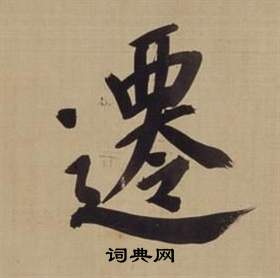 遷
词典网